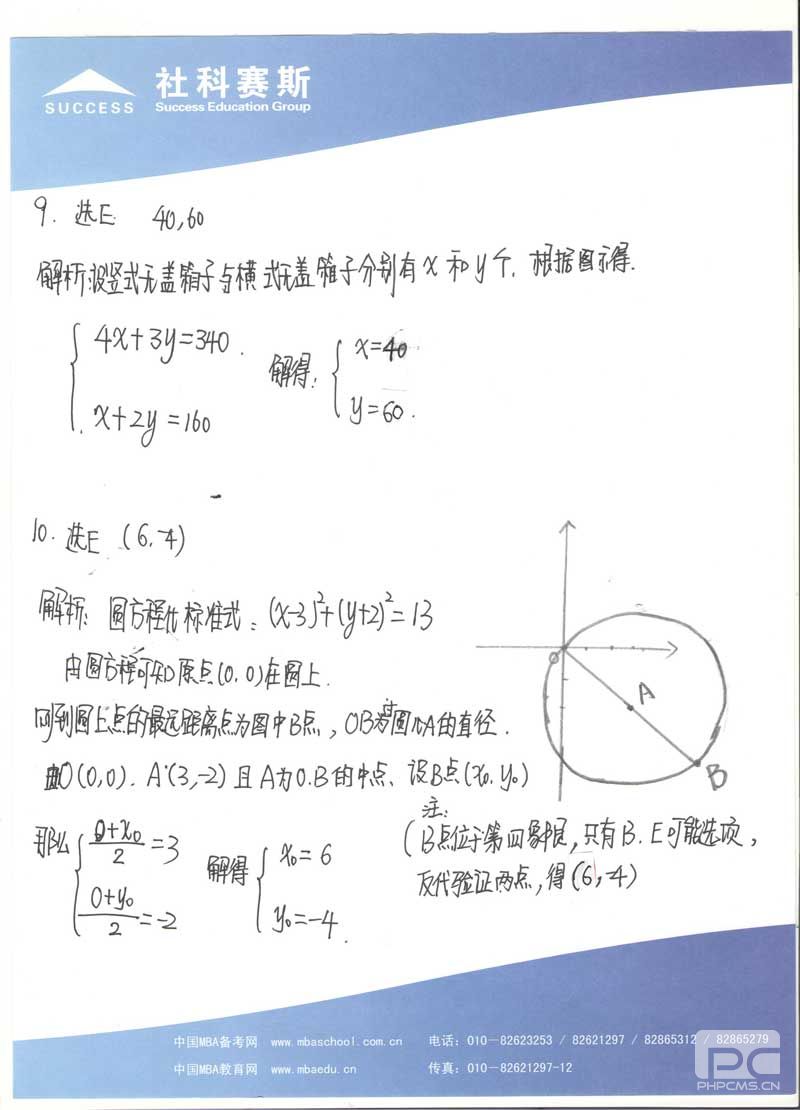 社科赛斯
SUCCESS
Success Education Group
9. 选E 40,60
解析:设竖式无盖箱子与横式无盖箱子分别有x和y个.根据图示得.
4x+3y=340.
x+2y=160
解得:
x=40
y=60.
10. 选E (6,-4)
解析: 圆方程化标准式: (x-3)²+(y+2)²=13
由圆方程可知原点(0,0)在圆上.
则到圆上点的最远距离点为图中B点, OB为圆心A的直径.
由O(0,0). A(3,-2)且A为O.B的中点、设B点(x₀,y₀)
那么
0+x₀/2=3
0+y₀/2=-2
解得
x₀=6
y₀=-4.
注:
(B点位于第四象限,只有B.E可能选项,
反代验证两点,得(6,-4)
O
A
B
中国MBA备考网 www.mbaschool.com.cn 电话:010-82623253 / 82621297 / 82865312 / 82865279
中国MBA教育网 www.mbaedu.cn 传真:010-82621297-12
PC
PHPCMS.CN